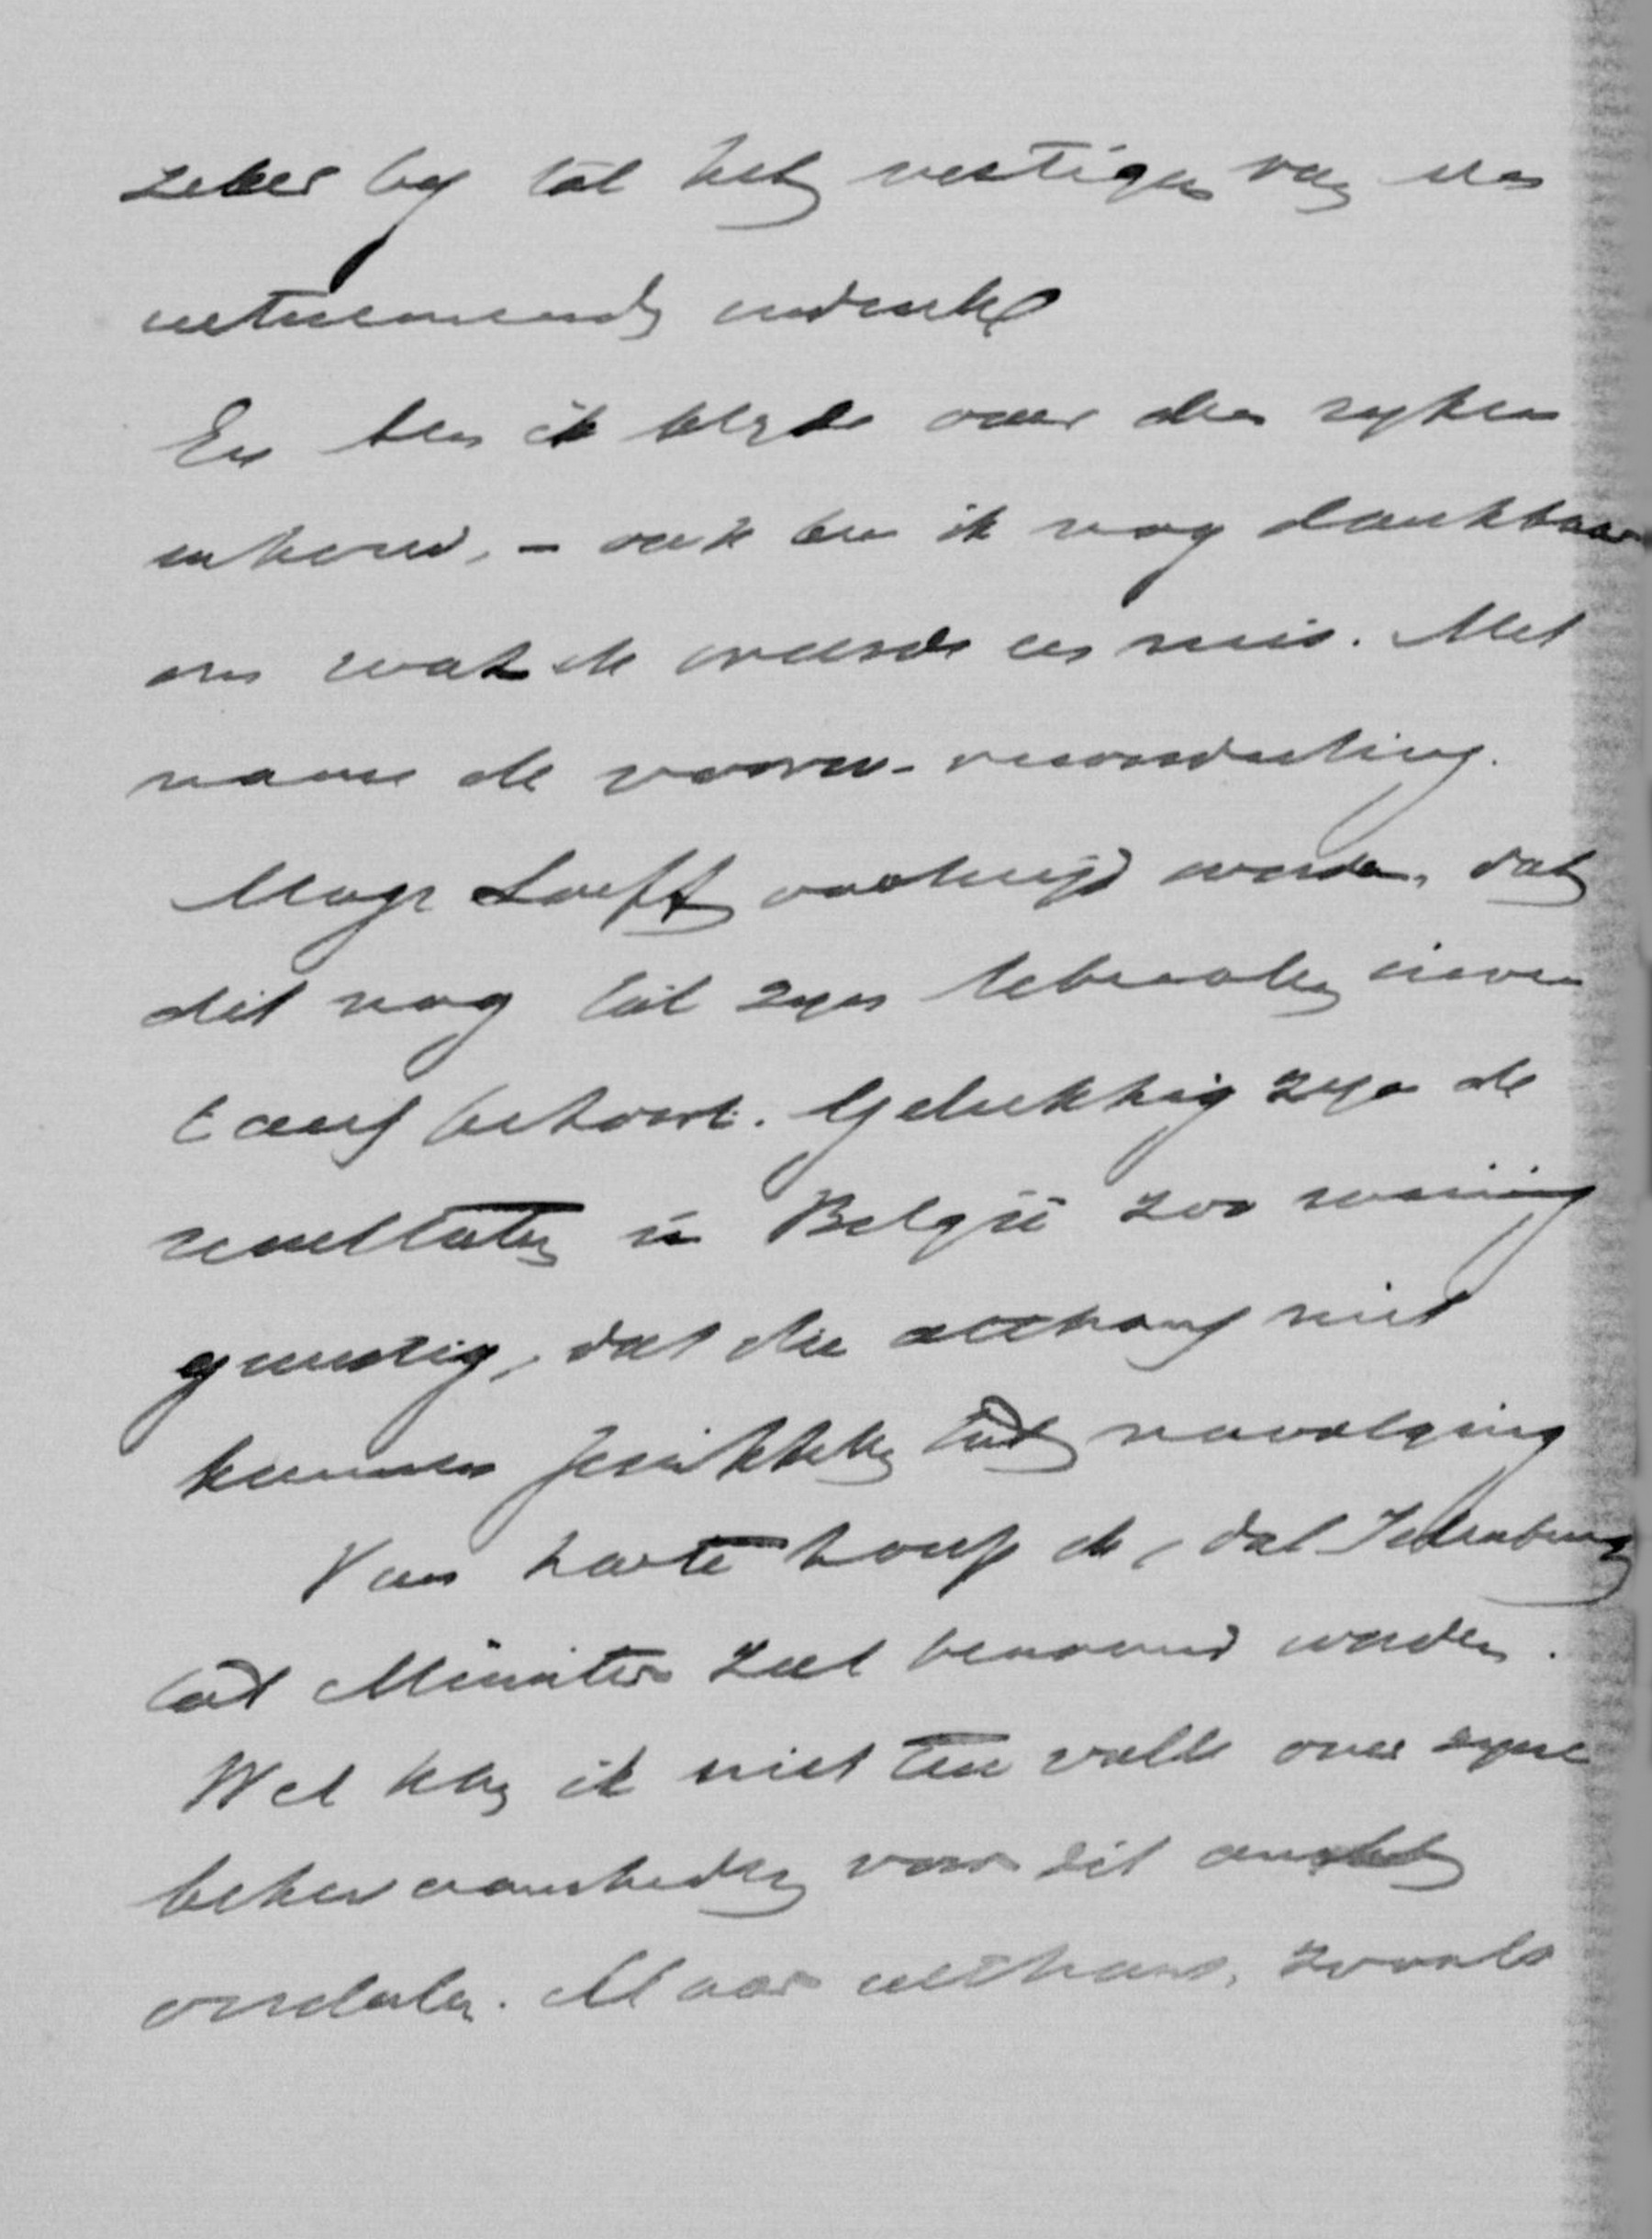 zeker by tot het vestigen van een
uitnemende indruk
En ben ik blyde over den ryken
inhoud, - ook ben ik nog dankbaar
om wat ik er in mis. Met
name de voorw. veroordeeling.
Moge Loeff overtuigd worden, dat
dit nog tot zyn
behoort. Gelukkig zyn de
resultaten in België zoo weinig
gunstig, dat die althans niet
kunnen prikkelen tot navolging
Van harte hoop ik, dat Idenburg
tot Minister zal benoemd worden.
Wel kan ik niet ten volle over zyne
bekwaamheden voor dit ambt
oordeelen. Maar althans, zooals